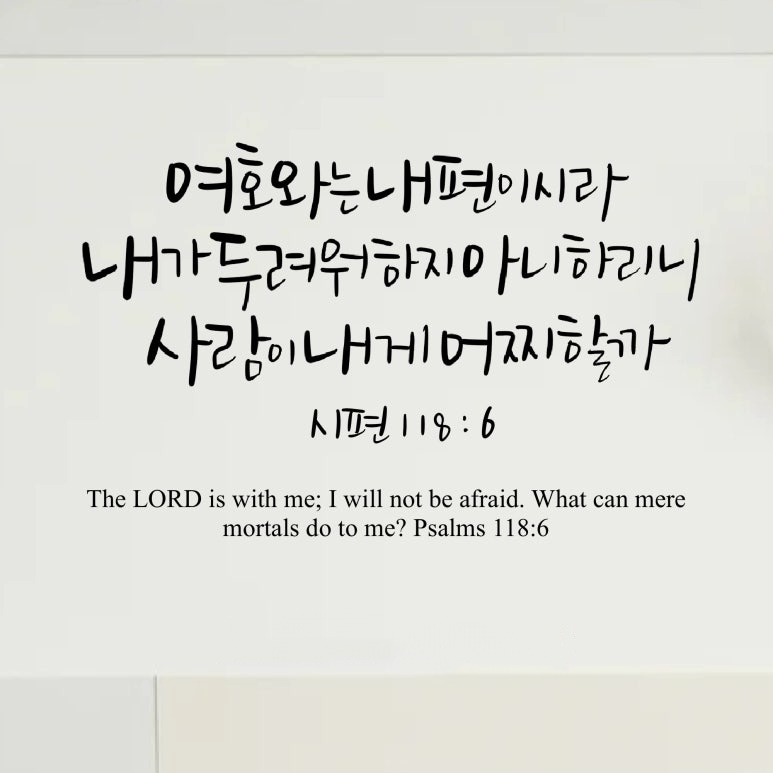 여호와는 내편이시라
내가 두려워하지 아니하리니
사람이 내게 어찌할까
시편 118 : 6
The LORD is with me; I will not be afraid. What can mere
mortals do to me? Psalms 118:6